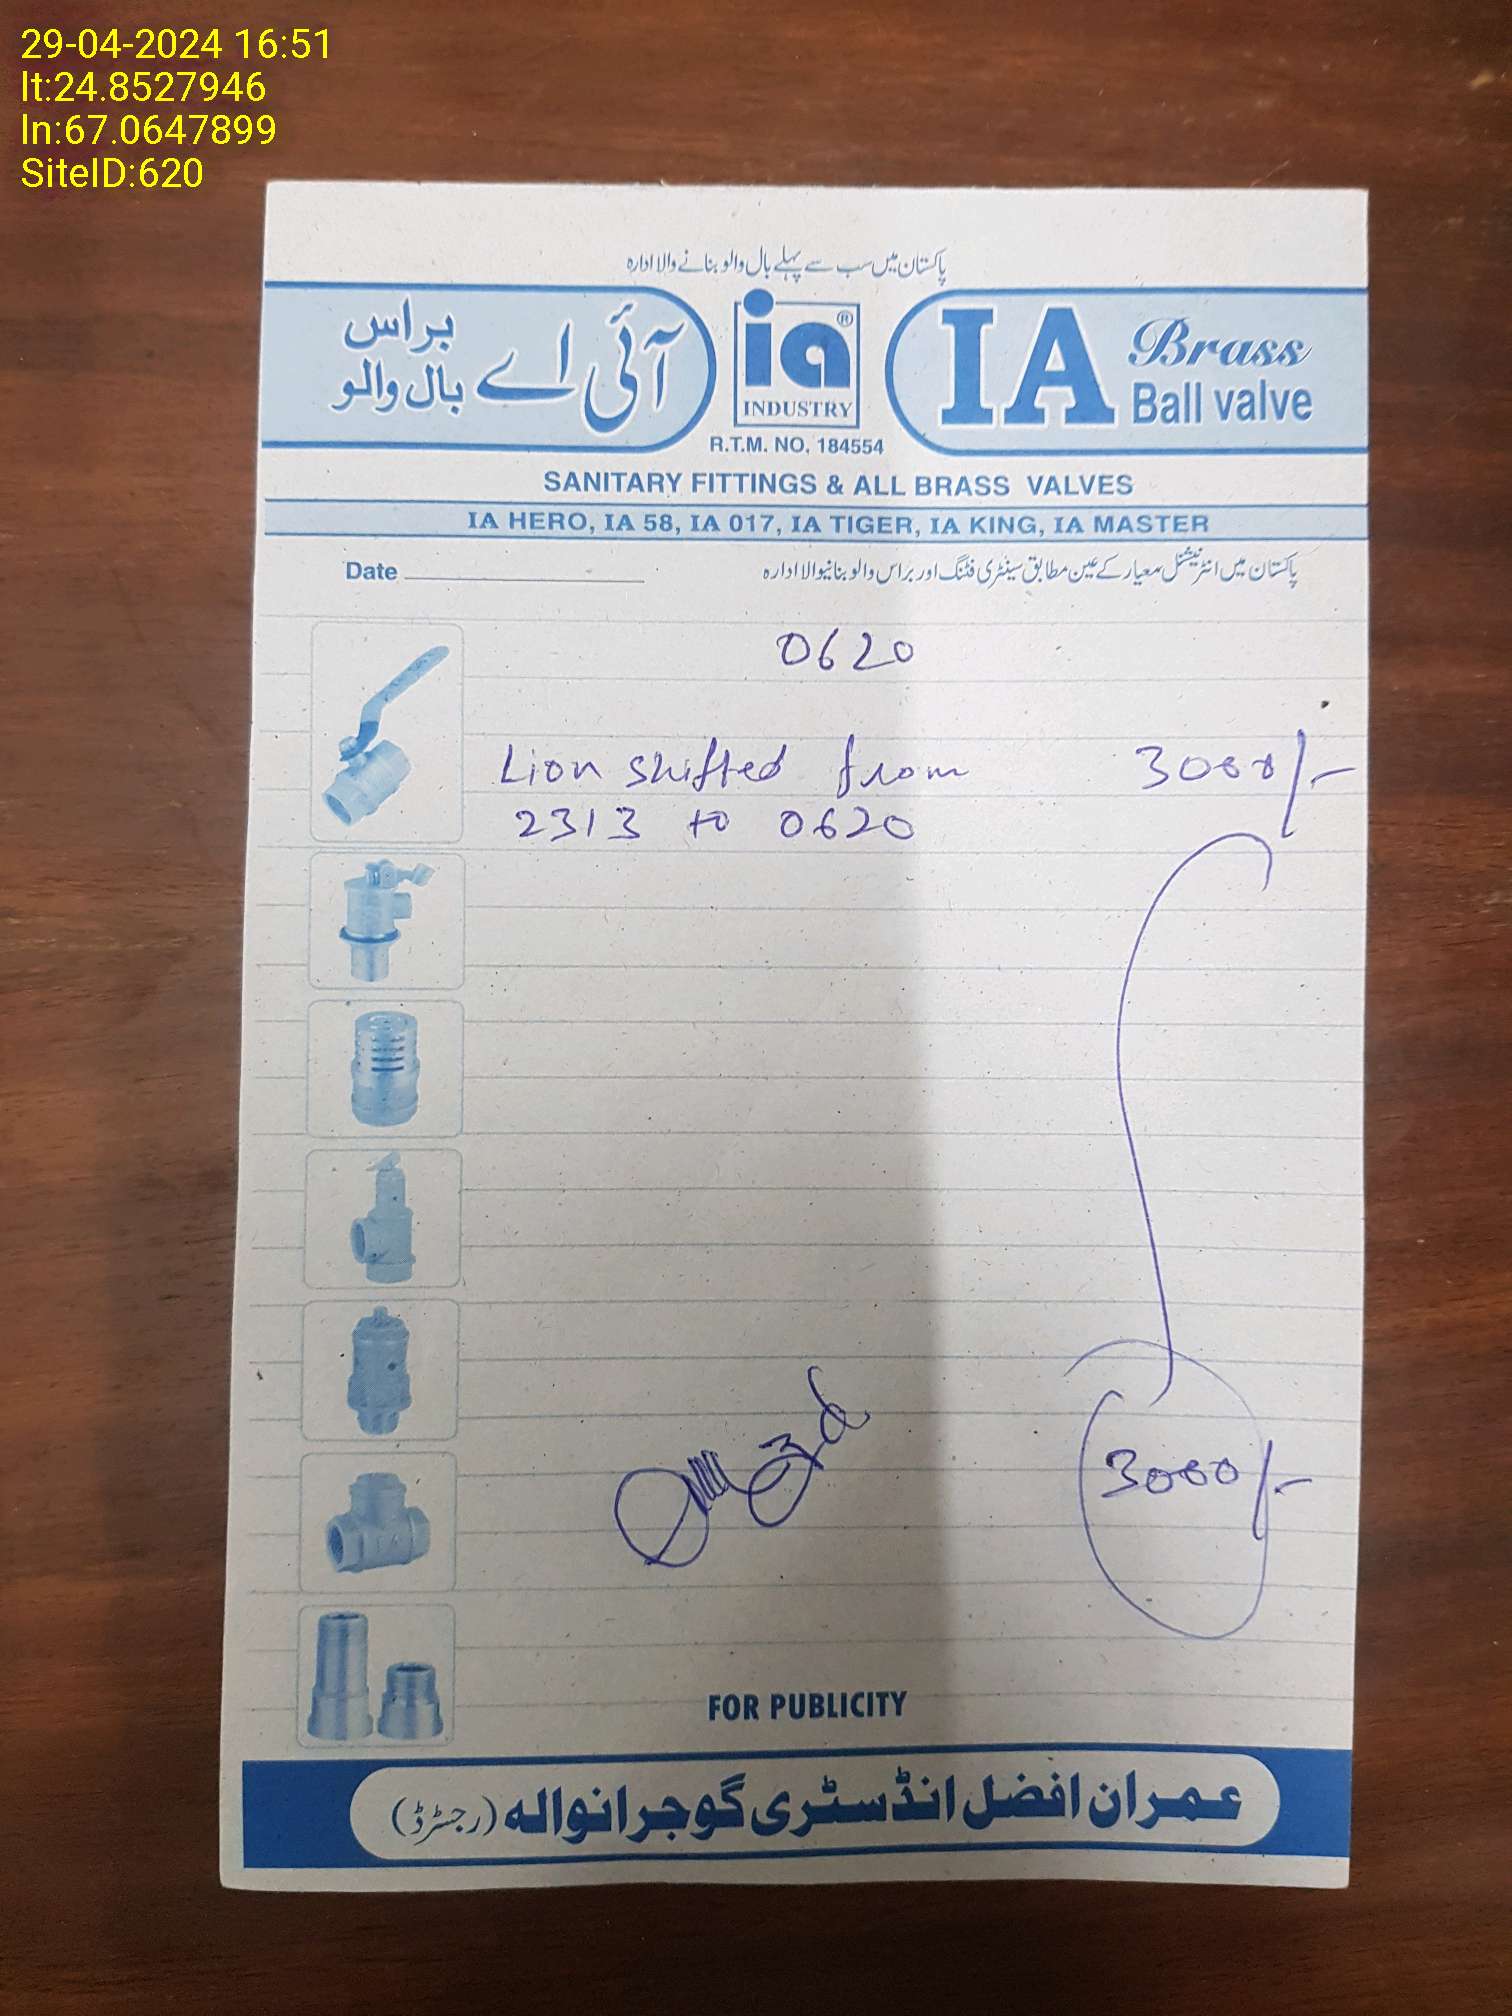 29-04-2024 16:51
lt:24.8527946
ln:67.0647899
SiteID:620
پاکستان میں سب سے پہلے بال والو بنانے والا ادارہ
آئی اے براس بال والو
ia®
INDUSTRY
R.T.M. NO. 184554
IA Brass
Ball valve
SANITARY FITTINGS & ALL BRASS VALVES
IA HERO, IA 58, IA 017, IA TIGER, IA KING, IA MASTER
Date
پاکستان میں انٹرنیشنل معیار کے عین مطابق سینٹری فٹنگ اور براس والو بنانیوالا ادارہ
0620
Lion shifted from 3000/-
2313 to 0620
3000/-
FOR PUBLICITY
عمران افضل انڈسٹری گوجرانوالہ (رجسٹرڈ)